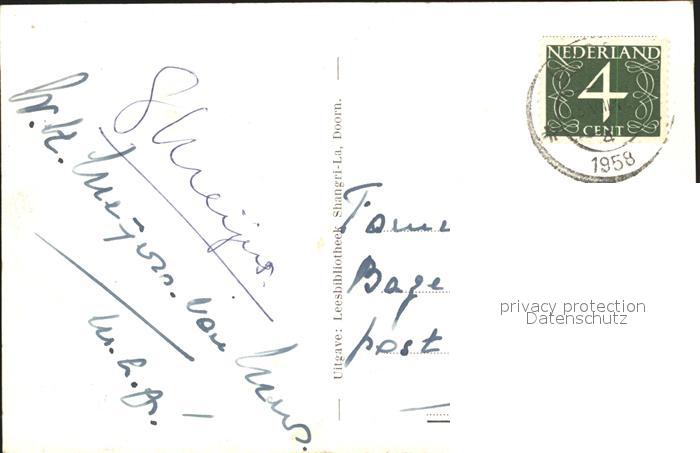 S Meijers.
W.H. Meijers. van
m.h.g.!
Uitgave: Leesbibliotheek Shangri-La, Doorn.
NEDERLAND
4
CENT
1958
Bage
post
privacy protection
Datenschutz